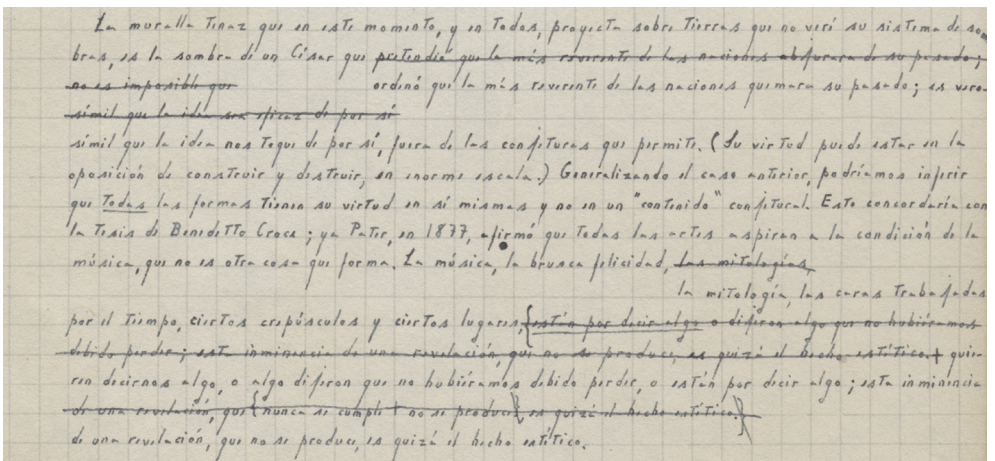 La muralla tenaz que en este momento, y en todos, proyecta sobre tierras que no veré su sistema de som
bras, es la sombra de un César que pretendió que la más reverente de las naciones abjurara de su pasado;
no es imposible que ordenó que la más reverente de las naciones quemara su pasado; es vero-
símil que la idea sea eficaz de por sí
símil que la idea nos toque de por sí, fuera de las conjeturas que permite. (Su virtud puede estar en la
oposición de construir y destruir, en enorme escala.) Generalizando el caso anterior, podríamos inferir
que todas las formas tienen su virtud en sí mismas y no en un "contenido" conjetural. Esto concordaría con
la tesis de Benedetto Croce; ya Pater, en 1877, afirmó que todas las artes aspiran a la condición de la
música, que no es otra cosa que forma. La música, la brusca felicidad, las mitologías,
la mitología, las caras trabajadas
por el tiempo, ciertos crepúsculos y ciertos lugares, {están por decir algo o dijeron algo que no hubiéramos
debido perder; esta inminencia de una revelación, que no se produce, es quizá el hecho estético. + quie-
ren decirnos algo, o algo dijeron que no hubiéramos debido perder, o están por decir algo; esta inminencia
de una revelación, que {nunca se cumple + no se produce} es quizá el hecho estético.}
de una revelación, que no se produce, es quizá el hecho estético.